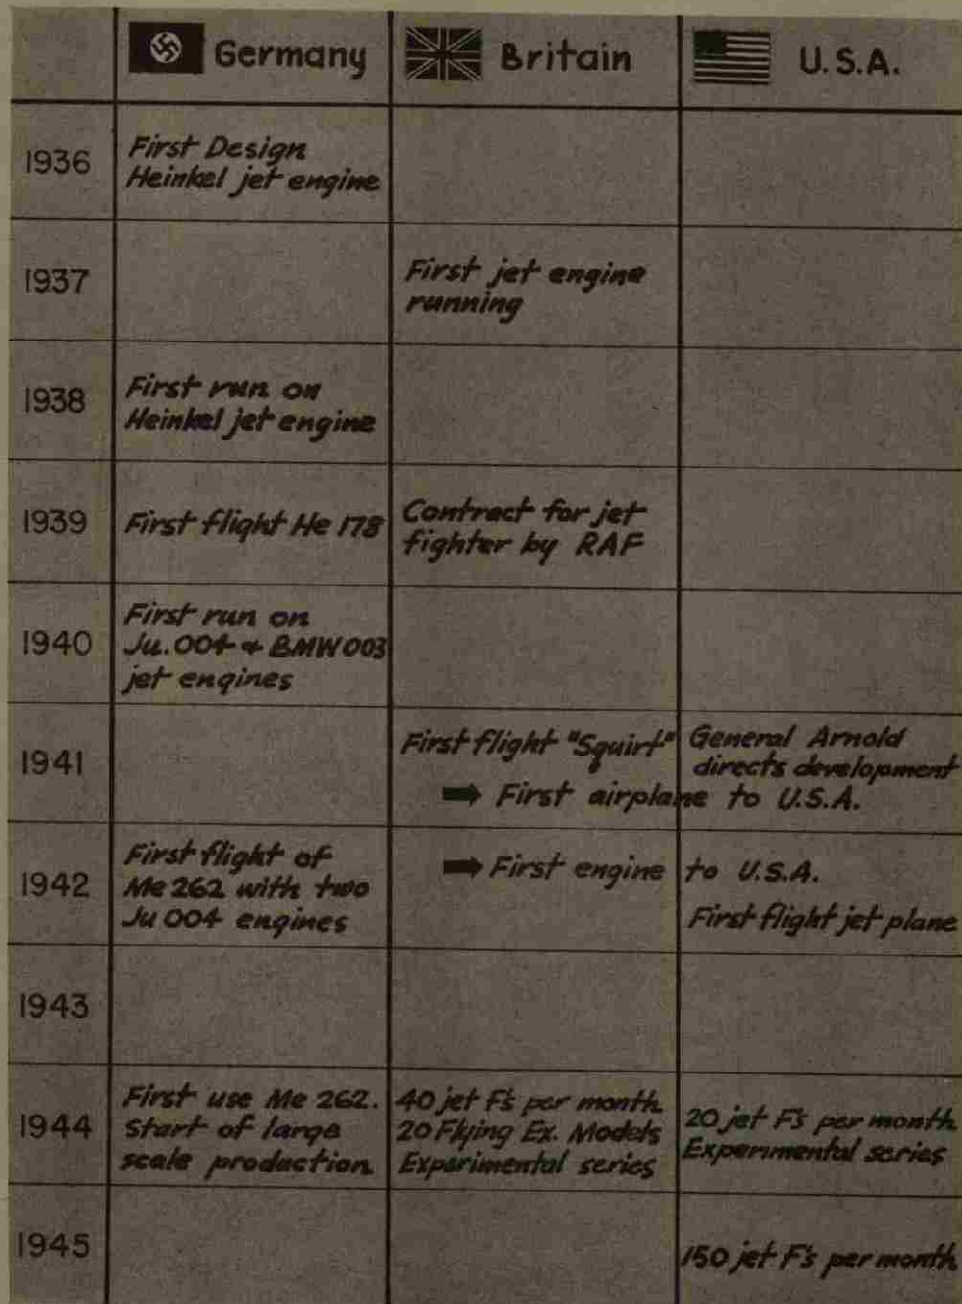 Germany Britain U.S.A.
1936
First Design
Heinkel jet engine
1937
First jet engine
running
1938
First run on
Heinkel jet engine
1939
First flight He 178
Contract for jet
fighter by RAF
1940
First run on
Ju.004 & BMW003
jet engines
1941
First flight "Squirt"
General Arnold
directs development
➡ First airplane to U.S.A.
1942
First flight of
Me 262 with two
Ju 004 engines
➡ First engine to U.S.A.
First flight jet plane
1943
1944
First use Me 262.
Start of large
scale production.
40 jet F's per month
20 Flying Ex. Models
Experimental series
20 jet F's per month
Experimental series
1945
150 jet F's per month